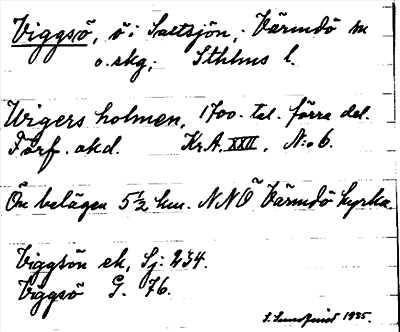 Viggsö, ö i Saltsjön, Värmdö sn
o. skg; Sthlms l.
Wigersholmen, 1700-tal. förra del.
Förf. okd. Kr.A. XXII, N:o 6.
Ön belägen 5 1/2 km. NNÖ Värmdö kyrka.
Viggsön ek, Sj: 234.
Viggsö G. 76.
S. Lundqvist 1925.